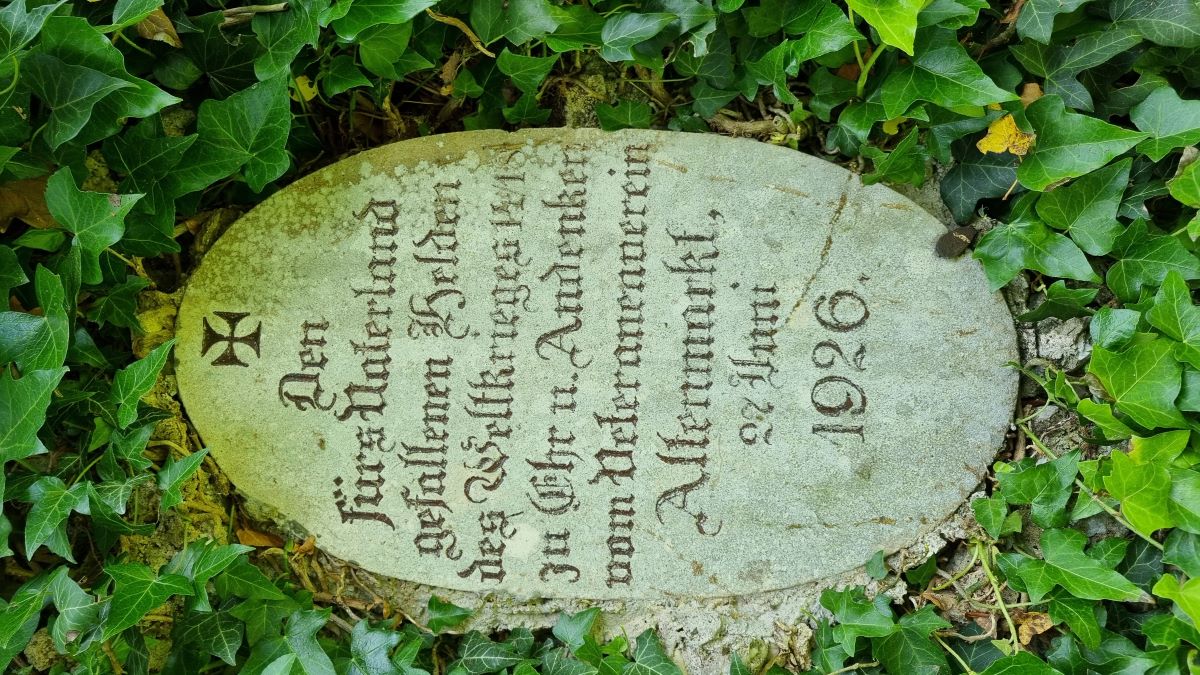 Den
fürs Vaterland
gefallenen Helden
des Weltkrieges
zu Ehr u. Andenken
vom Veteranenverein
Altenmarkt,
27 Juni
1926.